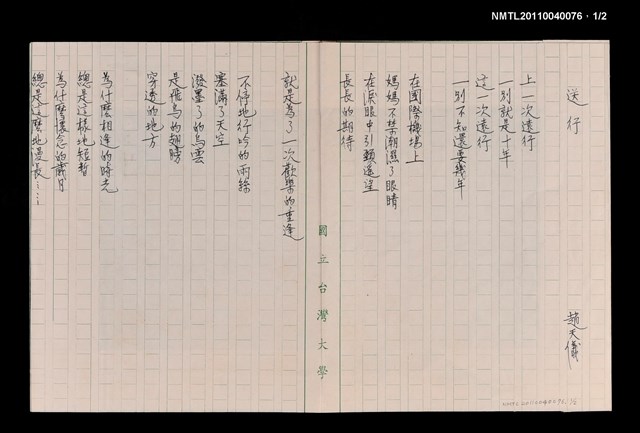 NMTL20110040076・1/2
送行
趙天儀
上一次遠行
一別就是十年
這一次遠行
一別不知還要幾年
在國際機場上
媽媽不禁潮濕了眼睛
在淚眼中引頸遙望
長長的期待
國立台灣大學
就是為了一次歡樂的重逢
不停地行吟的雨絲
塞滿了天空
潑墨了的烏雲
是飛鳥的翅膀
穿透的地方
為什麼相逢的時光
總是這樣地短暫
為什麼懷念的歲月
總是這麼地漫長……
NMTL20110040076, 1/2